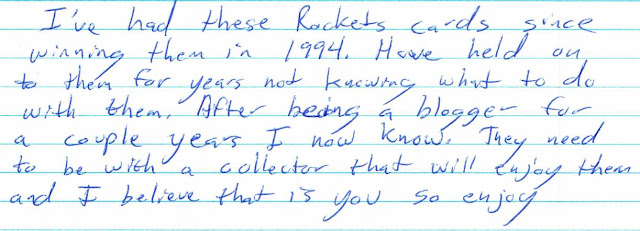 I've had these Rockets cards since
winning them in 1994. Have held on
to them for years not knowing what to do
with them. After being a blogger for
a couple years I now know. They need
to be with a collector that will enjoy them
and I believe that is you so enjoy